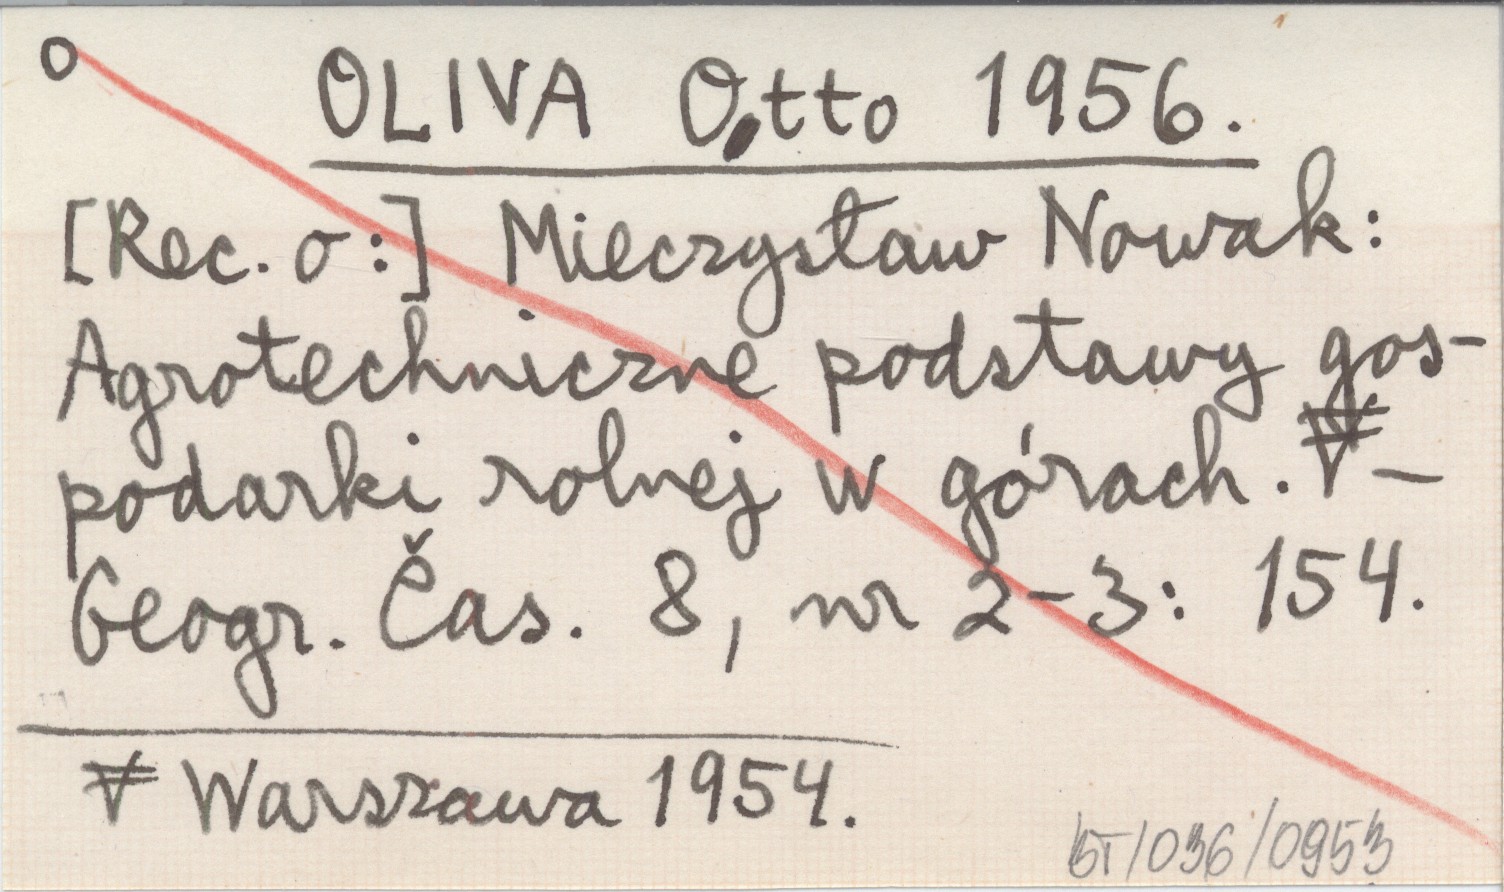 o
OLIVA Otto 1956.
[Rec. o:] Mieczysław Nowak:
Agrotechniczne podstawy gos-
podarki rolnej w górach. –
Geogr. Čas. 8, nr 2-3: 154.
Warszawa 1954.
BT/036/0953